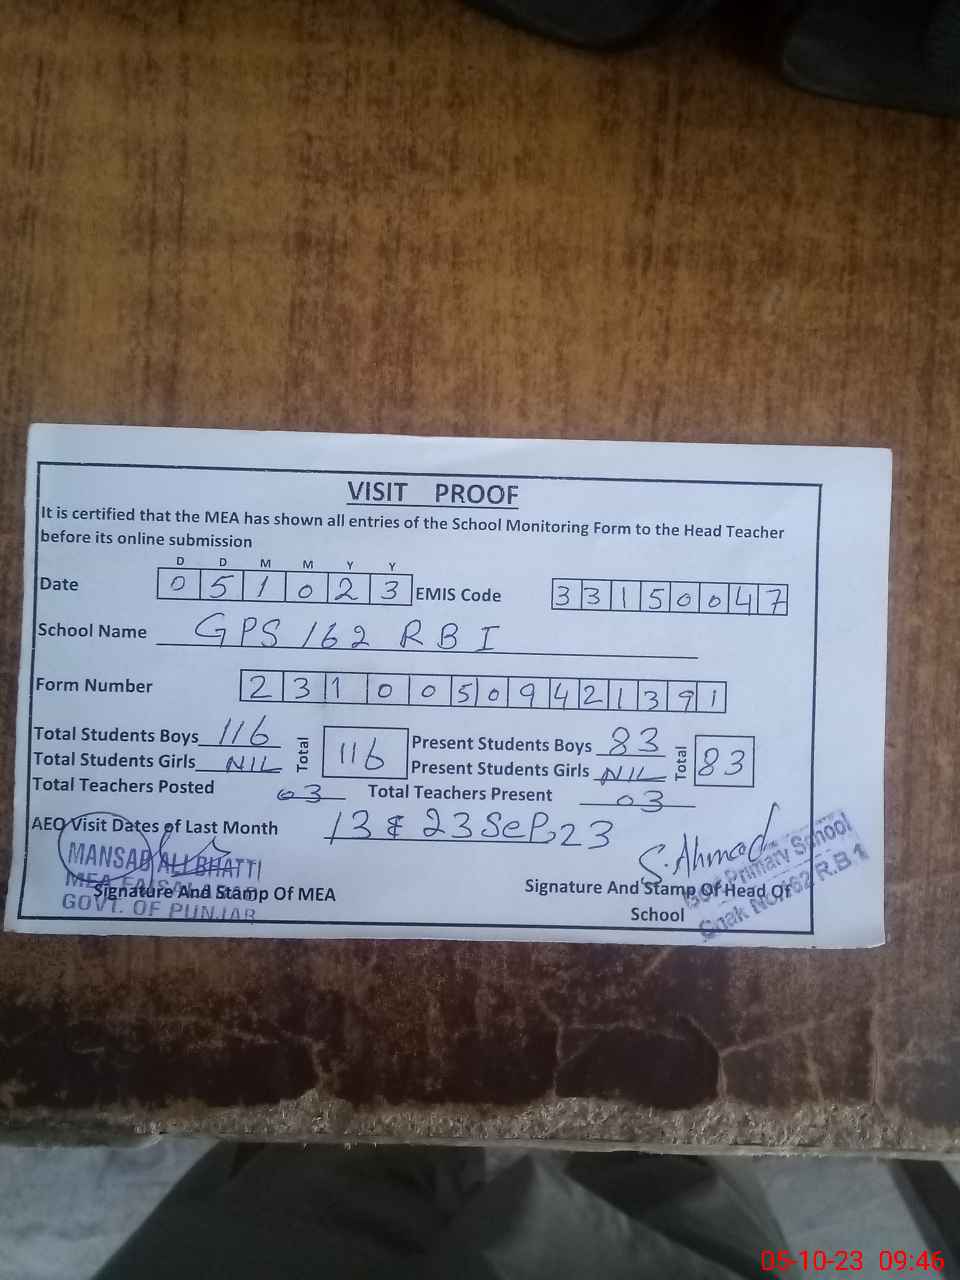 VISIT PROOF
It is certified that the MEA has shown all entries of the School Monitoring Form to the Head Teacher
before its online submission
D D M M Y Y
Date 0 5 1 0 2 3 EMIS Code 3 3 1 5 0 0 4 7
School Name GPS 162 R B I
Form Number 2 3 1 0 0 5 0 9 4 2 1 3 9 1
Total Students Boys 116 Total 116 Present Students Boys 83 Total 83
Total Students Girls NIL Present Students Girls NIL
Total Teachers Posted 03 Total Teachers Present 03
AEO Visit Dates of Last Month 13 & 23 SeP, 23
S. Ahmad
MANSAB ALI BHATTI
MEA FAISALABAD
GOVT. OF PUNJAB
Signature And Stamp Of MEA
Signature And Stamp Of Head Of
School
Primary School
Chak No. 162 R.B.1
05-10-23 09:46